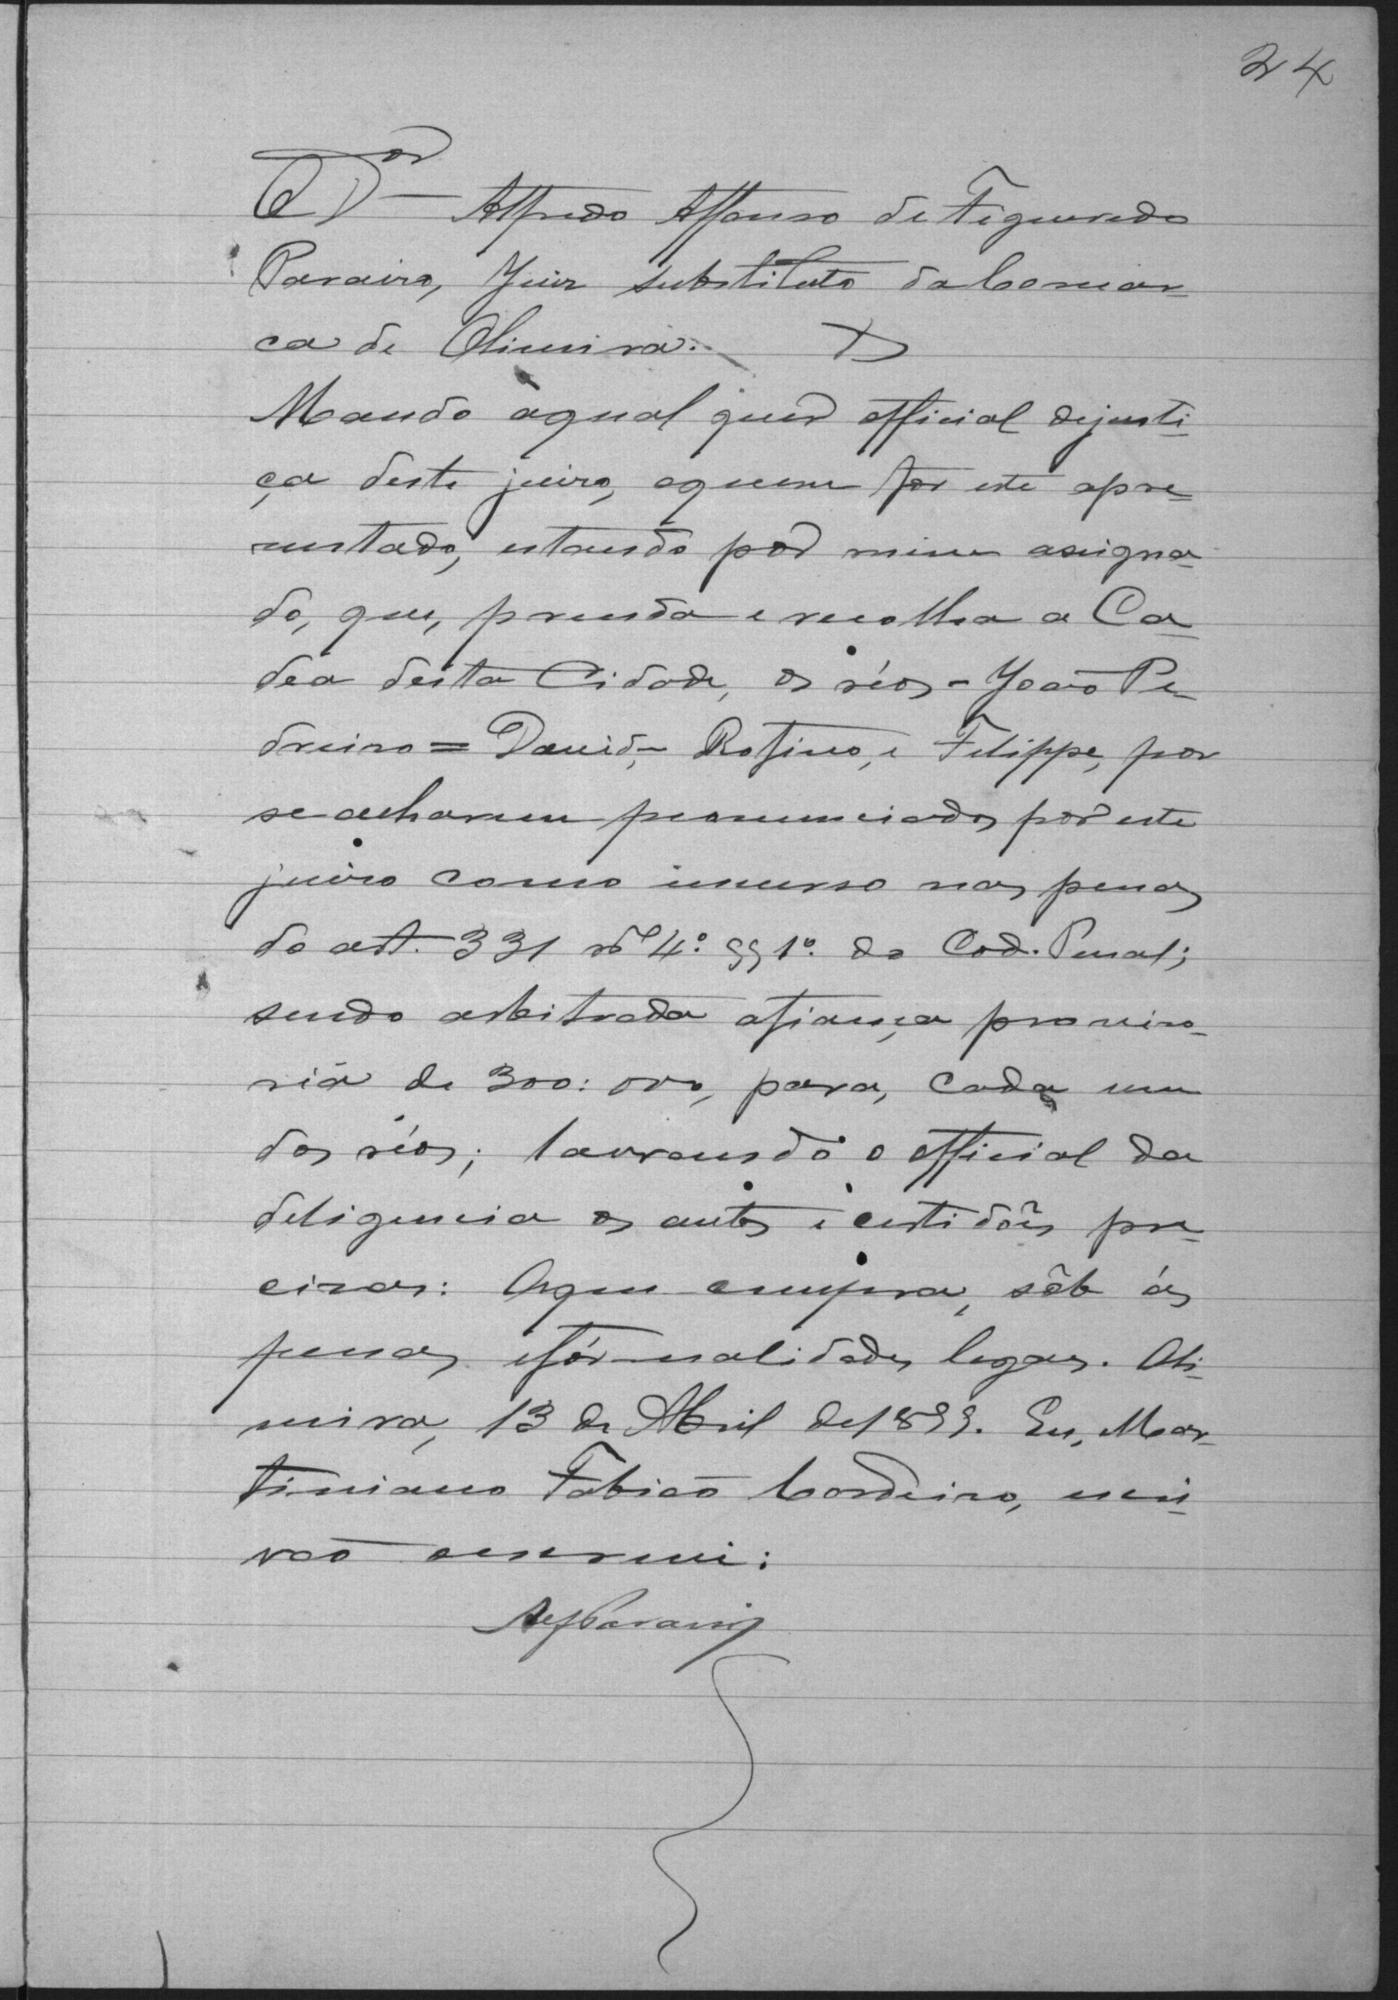 24
O Dor Alfredo Affonso de Figueiredo
Paraiso, Juiz substituto da Comar-
ca de Olimeira.
Mando aqual quer official dejusti-
ça deste juizo, aquem for este apre-
sentado, estando por mim assigna-
do, que, prenda e recolha a Ca-
dea desta Cidade, os réos - João Pe-
dreiro = David, - Rofino, e Felippe, por
se acharem pronunciados por este
juizo como incurso nas penas
do art. 331 nº 4º §§ 1º do Cod. Penal;
sendo arbitrada afiança proviso-
ria de 300:000, para, cada um
dos réos; lavrando o official da
deligencia os autos e certidões pre-
cisas: Oque cumpra, sob ás
penas, efórmalidades legaes. Oli-
meira, 13 de Abril de 1899. Eu, Mar-
tiniano Fabião Cordeiro, escri-
vão oescrevi: